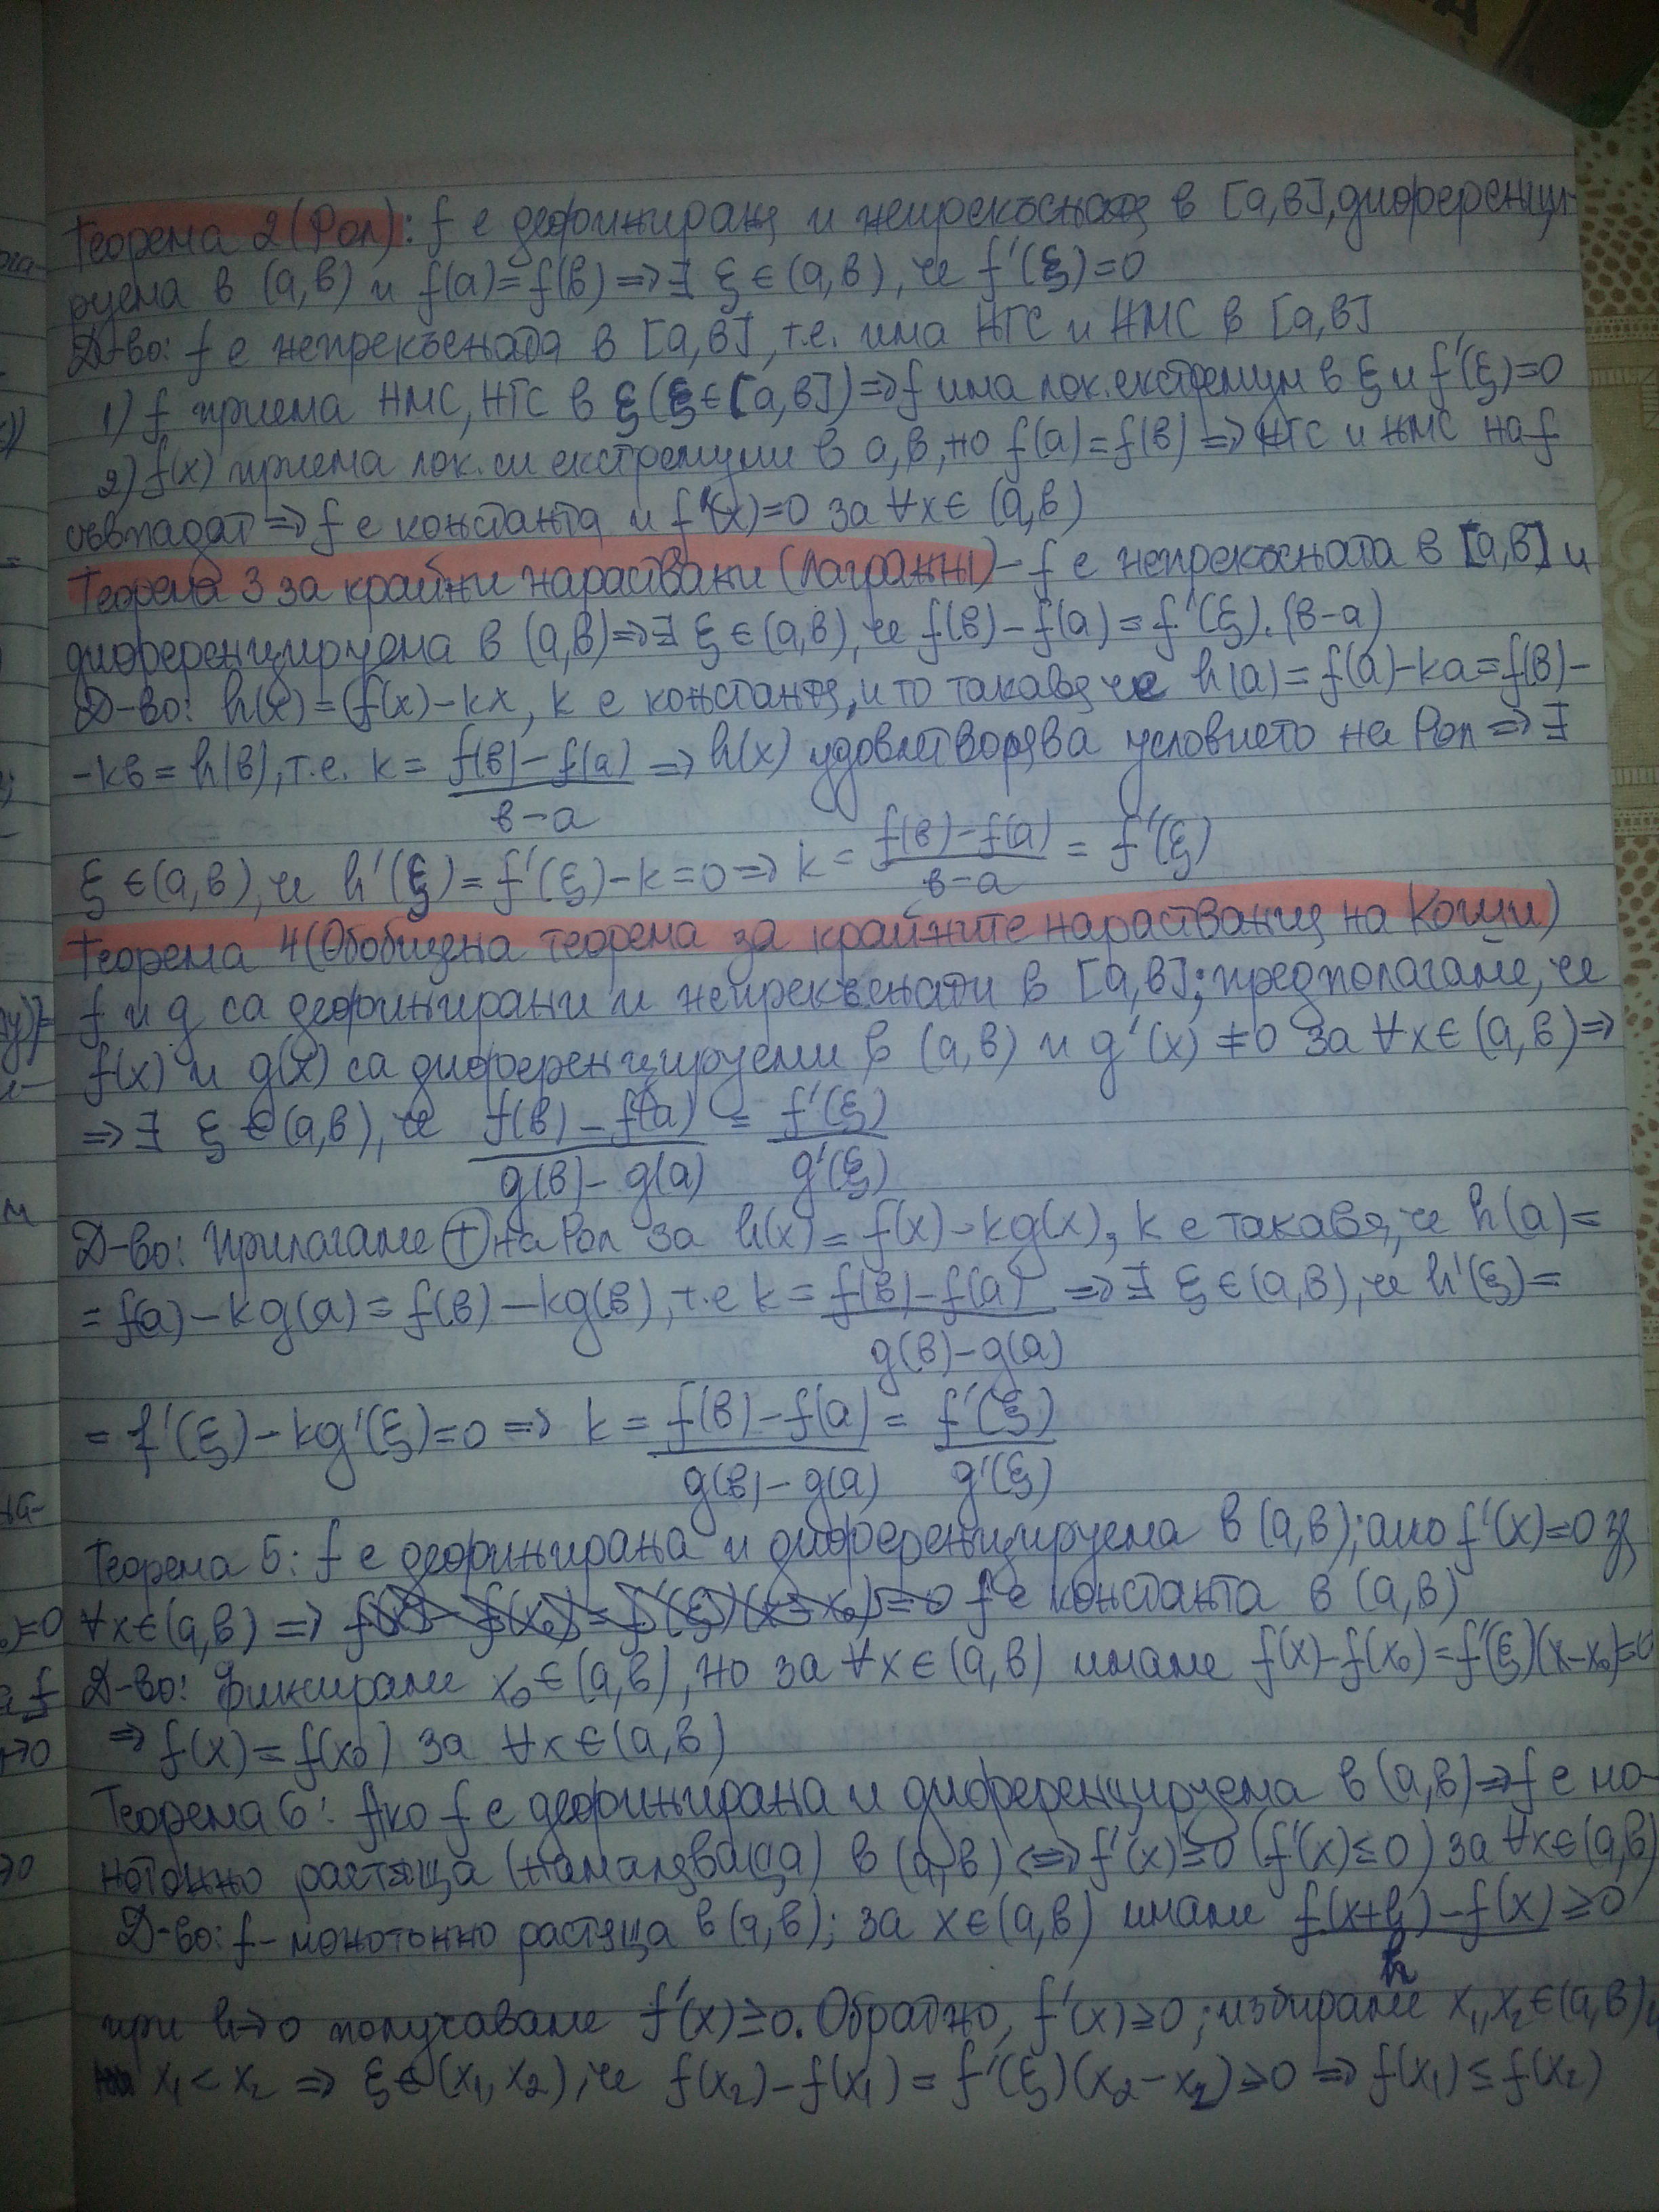 Теорема 2 (Рол): f е дефинирана и непрекъсната в [a,в], диференци-
руема в (a,в) и f(a)=f(в) => ∃ ξ ∈ (a,в), че f'(ξ)=0
Д-во: f е непрекъсната в [a,в], т.е. има НГС и НМС в [a,в]
1) f приема НМС, НГС в ξ (ξ ∈ [a,в]) => f има лок. екстремум в ξ и f'(ξ)=0
2) f(x) приема лок. си екстремуми в a,в, но f(a)=f(в) => НГС и НМС на f
съвпадат => f е константа и f'(x)=0 за ∀x∈ (a,в)
Теорема 3 за крайни нараствани (Лагранж) - f е непрекъсната в [a,в] и
диференцируема в (a,в) => ∃ ξ ∈ (a,в), че f(в) - f(a) = f'(ξ).(в-a)
Д-во: h(x) = f(x) - kx, k е константа, и то такава че h(a) = f(a) - ka = f(в) -
- kв = h(в), т.е. k = f(в) - f(a) / в - a => h(x) удовлетворява условието на Рол => ∃
ξ ∈ (a,в), че h'(ξ) = f'(ξ) - k = 0 => k = f(в) - f(a) / в - a = f'(ξ)
Теорема 4 (Обобщена теорема за крайните нараствания на Коши)
f и g са дефинирани и непрекъснати в [a,в]; предполагаме, че
f(x) и g(x) са диференцируеми в (a,в) и g'(x) ≠ 0 за ∀x∈ (a,в) =>
=> ∃ ξ ∈ (a,в), че f(в) - f(a) / g(в) - g(a) = f'(ξ) / g'(ξ)
Д-во: Прилагаме Т на Рол за h(x) = f(x) - kg(x), k е такава, че h(a) =
= f(a) - kg(a) = f(в) - kg(в), т.е k = f(в) - f(a) / g(в) - g(a) => ∃ ξ ∈ (a,в), че h'(ξ) =
= f'(ξ) - kg'(ξ) = 0 => k = f(в) - f(a) / g(в) - g(a) = f'(ξ) / g'(ξ)
Теорема 5: f е дефинирана и диференцируема в (a,в); ако f'(x)=0 за
∀x∈(a,в) => f(x) - f(x₀) = f'(ξ)(x - x₀) = 0 f е константа в (a,в)
Д-во: Фиксираме x₀ ∈ (a,в), но за ∀x ∈ (a,в) имаме f(x) - f(x₀) = f'(ξ)(x-x₀)=0
=> f(x) = f(x₀) за ∀x∈(a,в)
Теорема 6: Ако f е дефинирана и диференцируема в (a,в) => f е мо-
нотонно растяща (намаляваща) в (a,в) <=> f'(x) ≥ 0 (f'(x) ≤ 0) за ∀x∈(a,в)
Д-во: f - монотонно растяща в (a,в); за x∈(a,в) имаме f(x+h) - f(x) / h ≥ 0
при h→0 получаваме f'(x) ≥ 0. Обратно, f'(x) ≥ 0; избираме x₁,x₂∈(a,в),
x₁ < x₂ => ξ∈ (x₁, x₂), че f(x₂) - f(x₁) = f'(ξ)(x₂ - x₂) ≥ 0 => f(x₁) ≤ f(x₂)